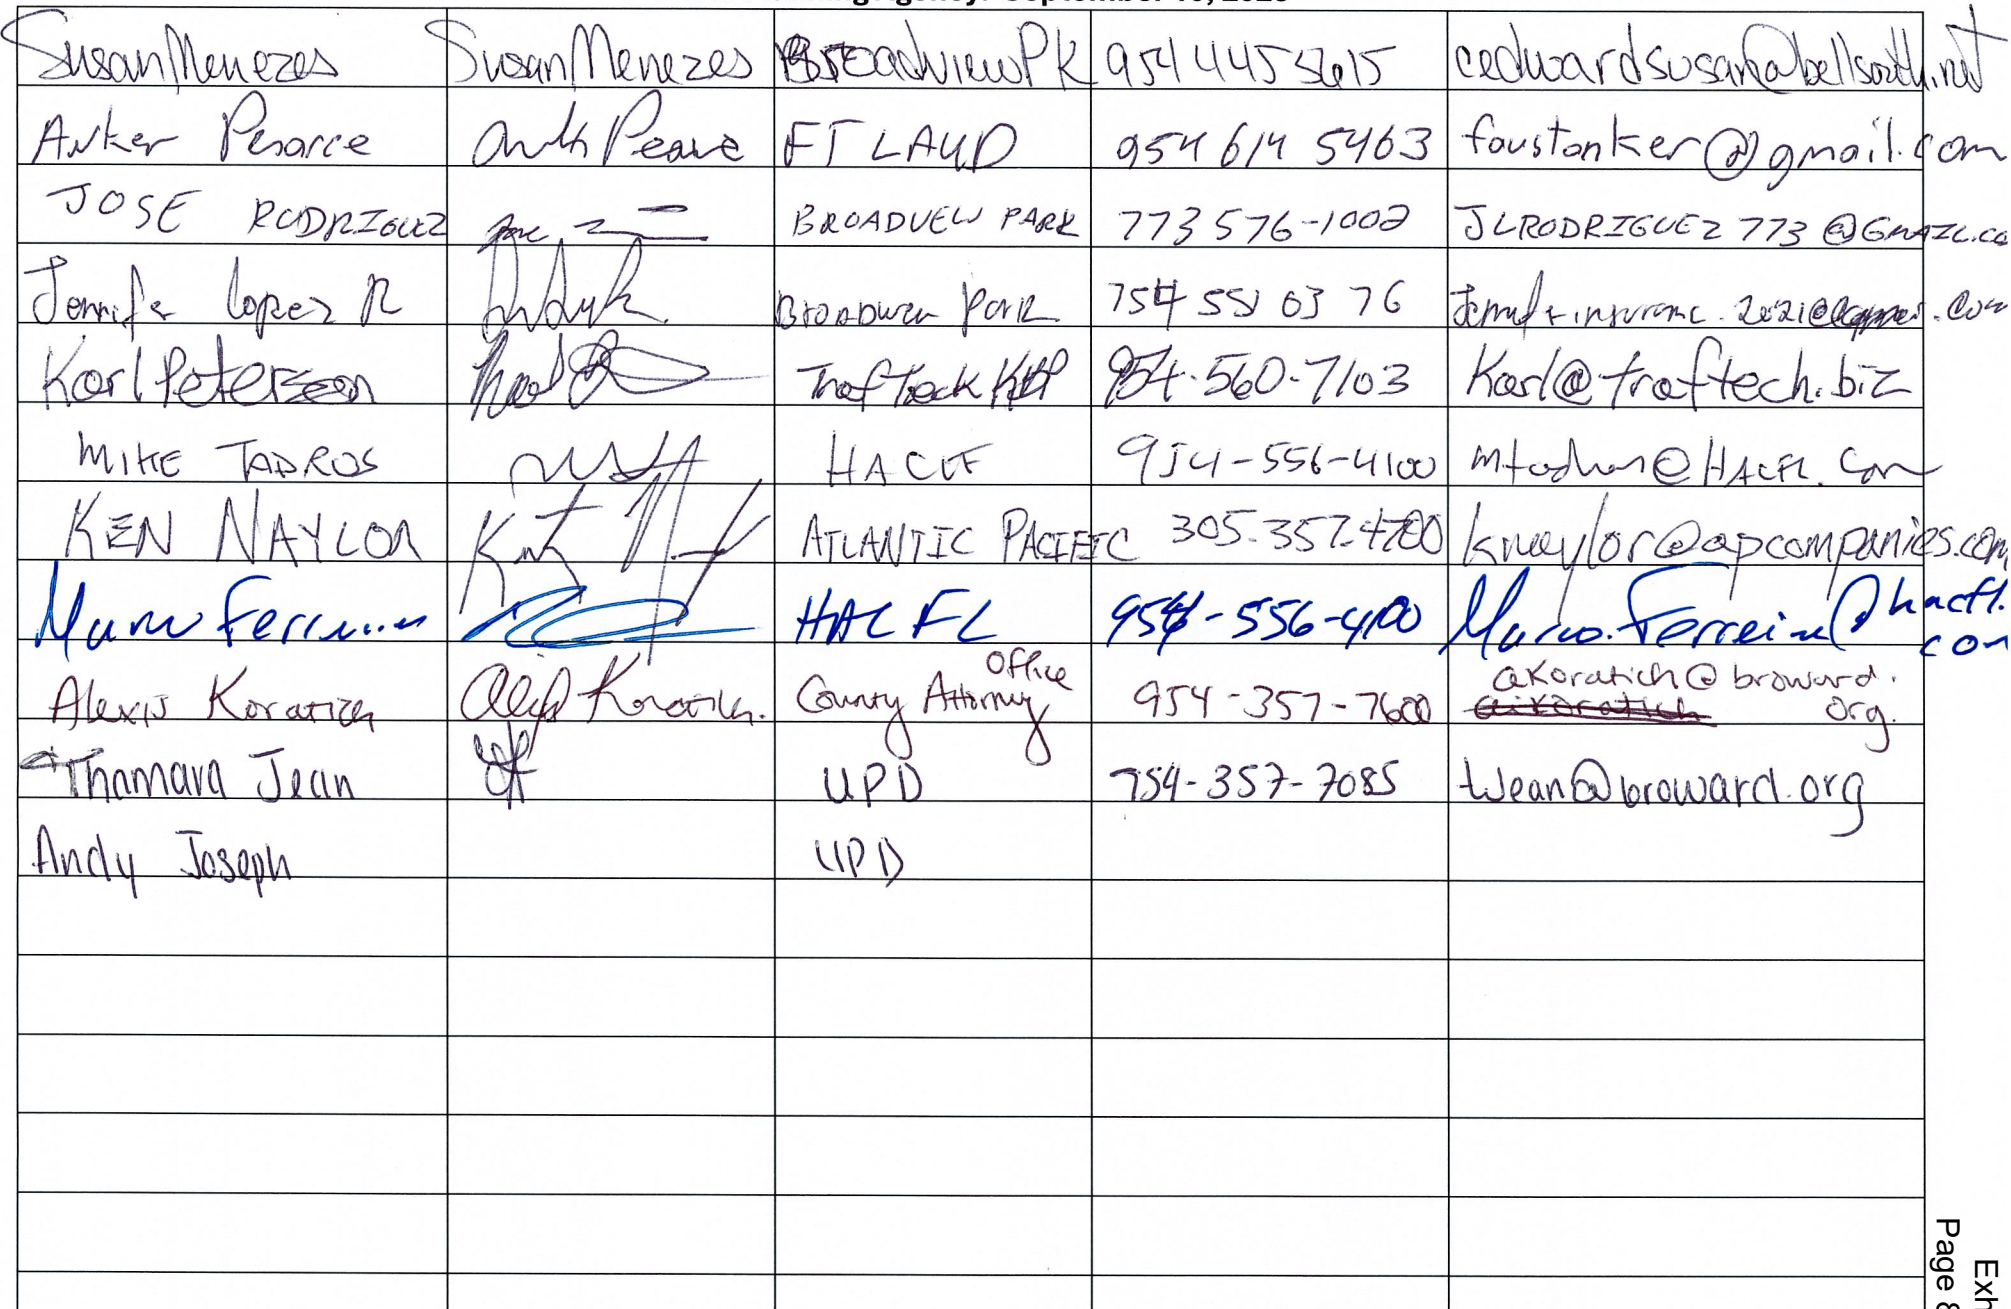 Susan Menezes Susan Menezes Broadview Pk 954 445 5615 cedwardsusan@bellsouth.net
Anker Pearce FT LAUD 954 614 5463 faustanker@gmail.com
JOSE RODRIGUEZ BROADVEW PARK 773 576-1002 JLRODRIGUEZ773@GMAIL.co
Jennifer Lopez R Park 754 551 03 76
Karl Peterson Traftech 954-560-7103 Karl@traftech.biz
MIKE TADROS 954-556-4100
KEN NAYLOR ATLANTIC PACIFIC 305.357.4700 knaylor@apcompanies.com
Marco Ferreira HACFL 954-556-4100 Marco.Ferreira@hacfl.com
Alexis Koratich Alexis Koratich. County Attorney Office 954-357-7600 akoratich@broward.org.
Thamara Jean UPD 754-357-7085 tjean@broward.org
Andy Joseph UPD
Page
Exh